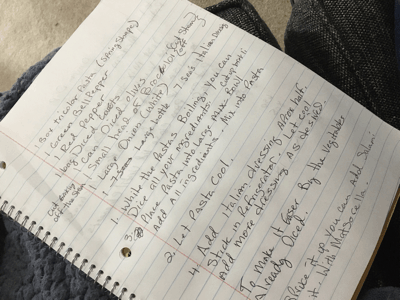 1 box Tricolor Pasta (Spring Shape)
1 Green Bell Pepper
1 Red Pepper
1 bag Diced Carrots
1 Can Diced olives
1 Small Head of Broccoli (Cut Stem off)
1 Large Onion (White)
1 Large bottle 7 Seas Italian Dressing
1. While the Pasta's Boiling, You can
Dice all your ingredients. Cut up broccoli
3. Place Pasta into Large Mix Bowl
Add All ingredients - Mix into Pasta
2. Let Pasta Cool.
4. Add Italian dressing Approx half.
Stick in Refrigerator & Let Cool
Add more dressing As desired.
To make it Easier By the Vegetables
Already Diced.
it up you can Add
it. With